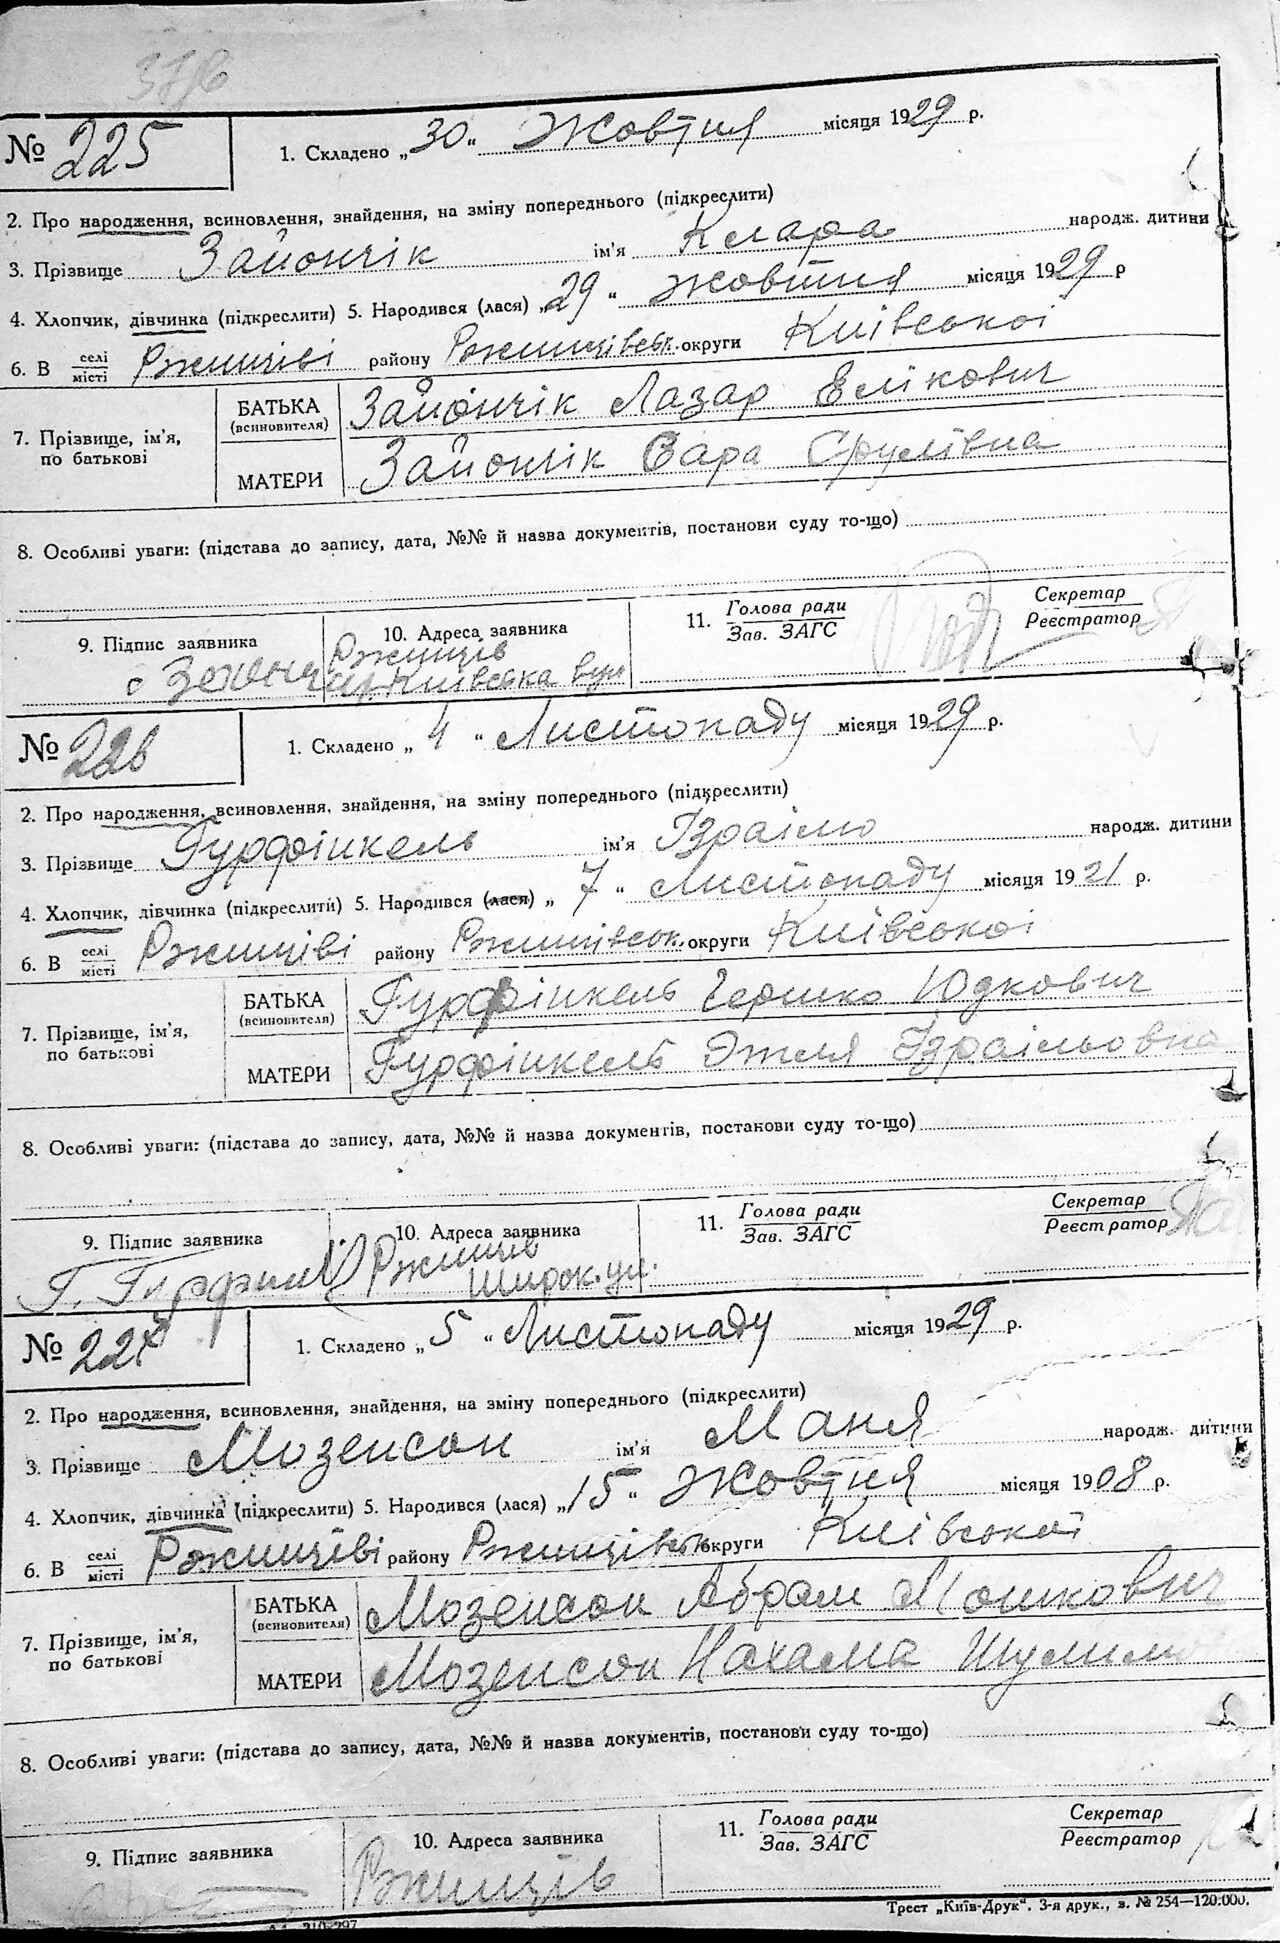 № 225
1. Складено „30“ Жовтня місяця 1929 р.
2. Про народження, всиновлення, знайдення, на зміну попереднього (підкреслити)
3. Прізвище Зайончік ім'я Клара народж. дитини
4. Хлопчик, дівчинка (підкреслити) 5. Народився (лася) „29“ жовтня місяця 1929 р
6. В селі/місті Ржищіві району Ржищівськ. округи Київської
7. Прізвище, ім'я, по батькові
БАТЬКА (всиновителя) Зайончік Лазар Елікович
МАТЕРИ Зайончік Сара Срулівна
8. Особливі уваги: (підстава до запису, дата, №№ й назва документів, постанови суду то-що)
9. Підпис заявника
10. Адреса заявника Ржищів
Київська вул
11. Голова ради/Зав. ЗАГС
Секретар/Реєстратор
№ 226
1. Складено „4“ Листопаду місяця 1929 р.
2. Про народження, всиновлення, знайдення, на зміну попереднього (підкреслити)
3. Прізвище Гурфінкель ім'я Ізраіль народж. дитини
4. Хлопчик, дівчинка (підкреслити) 5. Народився (лася) „7“ Листопаду місяця 1921 р.
6. В селі/місті Ржищіві району Ржищівськ. округи Київської
7. Прізвище, ім'я, по батькові
БАТЬКА (всиновителя) Гурфінкель Гершко Юдкович
МАТЕРИ Гурфінкель Этля Ізраільовна
8. Особливі уваги: (підстава до запису, дата, №№ й назва документів, постанови суду то-що)
9. Підпис заявника
10. Адреса заявника Ржищів
Широк. ул.
11. Голова ради/Зав. ЗАГС
Секретар/Реєстратор
№ 227
1. Складено „5“ Листопаду місяця 1929 р.
2. Про народження, всиновлення, знайдення, на зміну попереднього (підкреслити)
3. Прізвище Мозенсон ім'я Маня народж. дитини
4. Хлопчик, дівчинка (підкреслити) 5. Народився (лася) „15“ Жовтня місяця 1908 р.
6. В селі/місті Ржищіві району Ржищівськ округи Київської
7. Прізвище, ім'я, по батькові
БАТЬКА (всиновителя) Мозенсон Абрам Мошкович
МАТЕРИ Мозенсон Нахама
8. Особливі уваги: (підстава до запису, дата, №№ й назва документів, постанови суду то-що)
9. Підпис заявника
10. Адреса заявника Ржищів
11. Голова ради/Зав. ЗАГС
Секретар/Реєстратор
Трест „Київ-Друк“. 3-я друк., з. № 254—120.000.